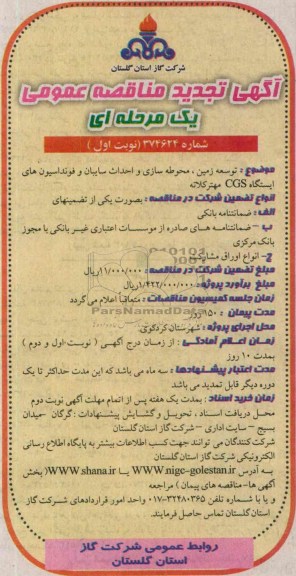 شرکت گاز استان گلستان
آگهی تجدید مناقصه عمومی
یک مرحله ای
شماره ۳۷۴۶۲۴ (نوبت اول)
موضوع : توسعه زمین ، محوطه سازی و احداث سایبان و فونداسیون های
ایستگاه CGS مهترکلاته
انواع تضمین شرکت در مناقصه : بصورت یکی از تضمینهای
الف : ضمانتنامه بانکی
ب - ضمانتنامه های صادره از موسسات اعتباری غیر بانکی با مجوز
بانک مرکزی
ج- انواع اوراق مشارکت
مبلغ تضمین شرکت در مناقصه : ۱۱/۰۰۰/۰۰۰ریال
مبلغ برآورد پروژه: ۱/۴۲۲/۰۰۰/۰۰۰ریال
زمان جلسه کمیسیون مناقصات : متعاقباً اعلام می گردد
مدت پیمان : ۱۵۰ روز
محل اجرای پروژه : شهرستان کردکوی
زمان اعلام آمادگی : از زمان درج آگهی ( نوبت اول و دوم )
بمدت ۱۰ روز
مدت اعتبار پیشنهادها : سه ماه می باشد که این مدت حداکثر تا یک
دوره دیگر قابل تمدید می باشد
زمان خرید اسناد : بمدت یک هفته پس از اتمام مهلت آگهی نوبت دوم
محل دریافت اسناد ، تحویل و گشایش پیشنهادات : گرگان - میدان
بسیج - سایت اداری - شرکت گاز استان گلستان
شرکت کنندگان می توانند جهت کسب اطلاعات بیشتر به پایگاه اطلاع رسانی
الکترونیکی شرکت گاز استان گلستان
به آدرس WWW.nigc-golestan.ir یا WWW.shana.ir( بخش
آگهی ها- مناقصه های پیمان ) مراجعه
و یا با شماره تلفن ۳۲۴۸۰۳۶۵-۰۱۷ واحد امور قراردادهای شرکت گاز
استان گلستان تماس حاصل فرمایند.
روابط عمومی شرکت گاز
استان گلستان